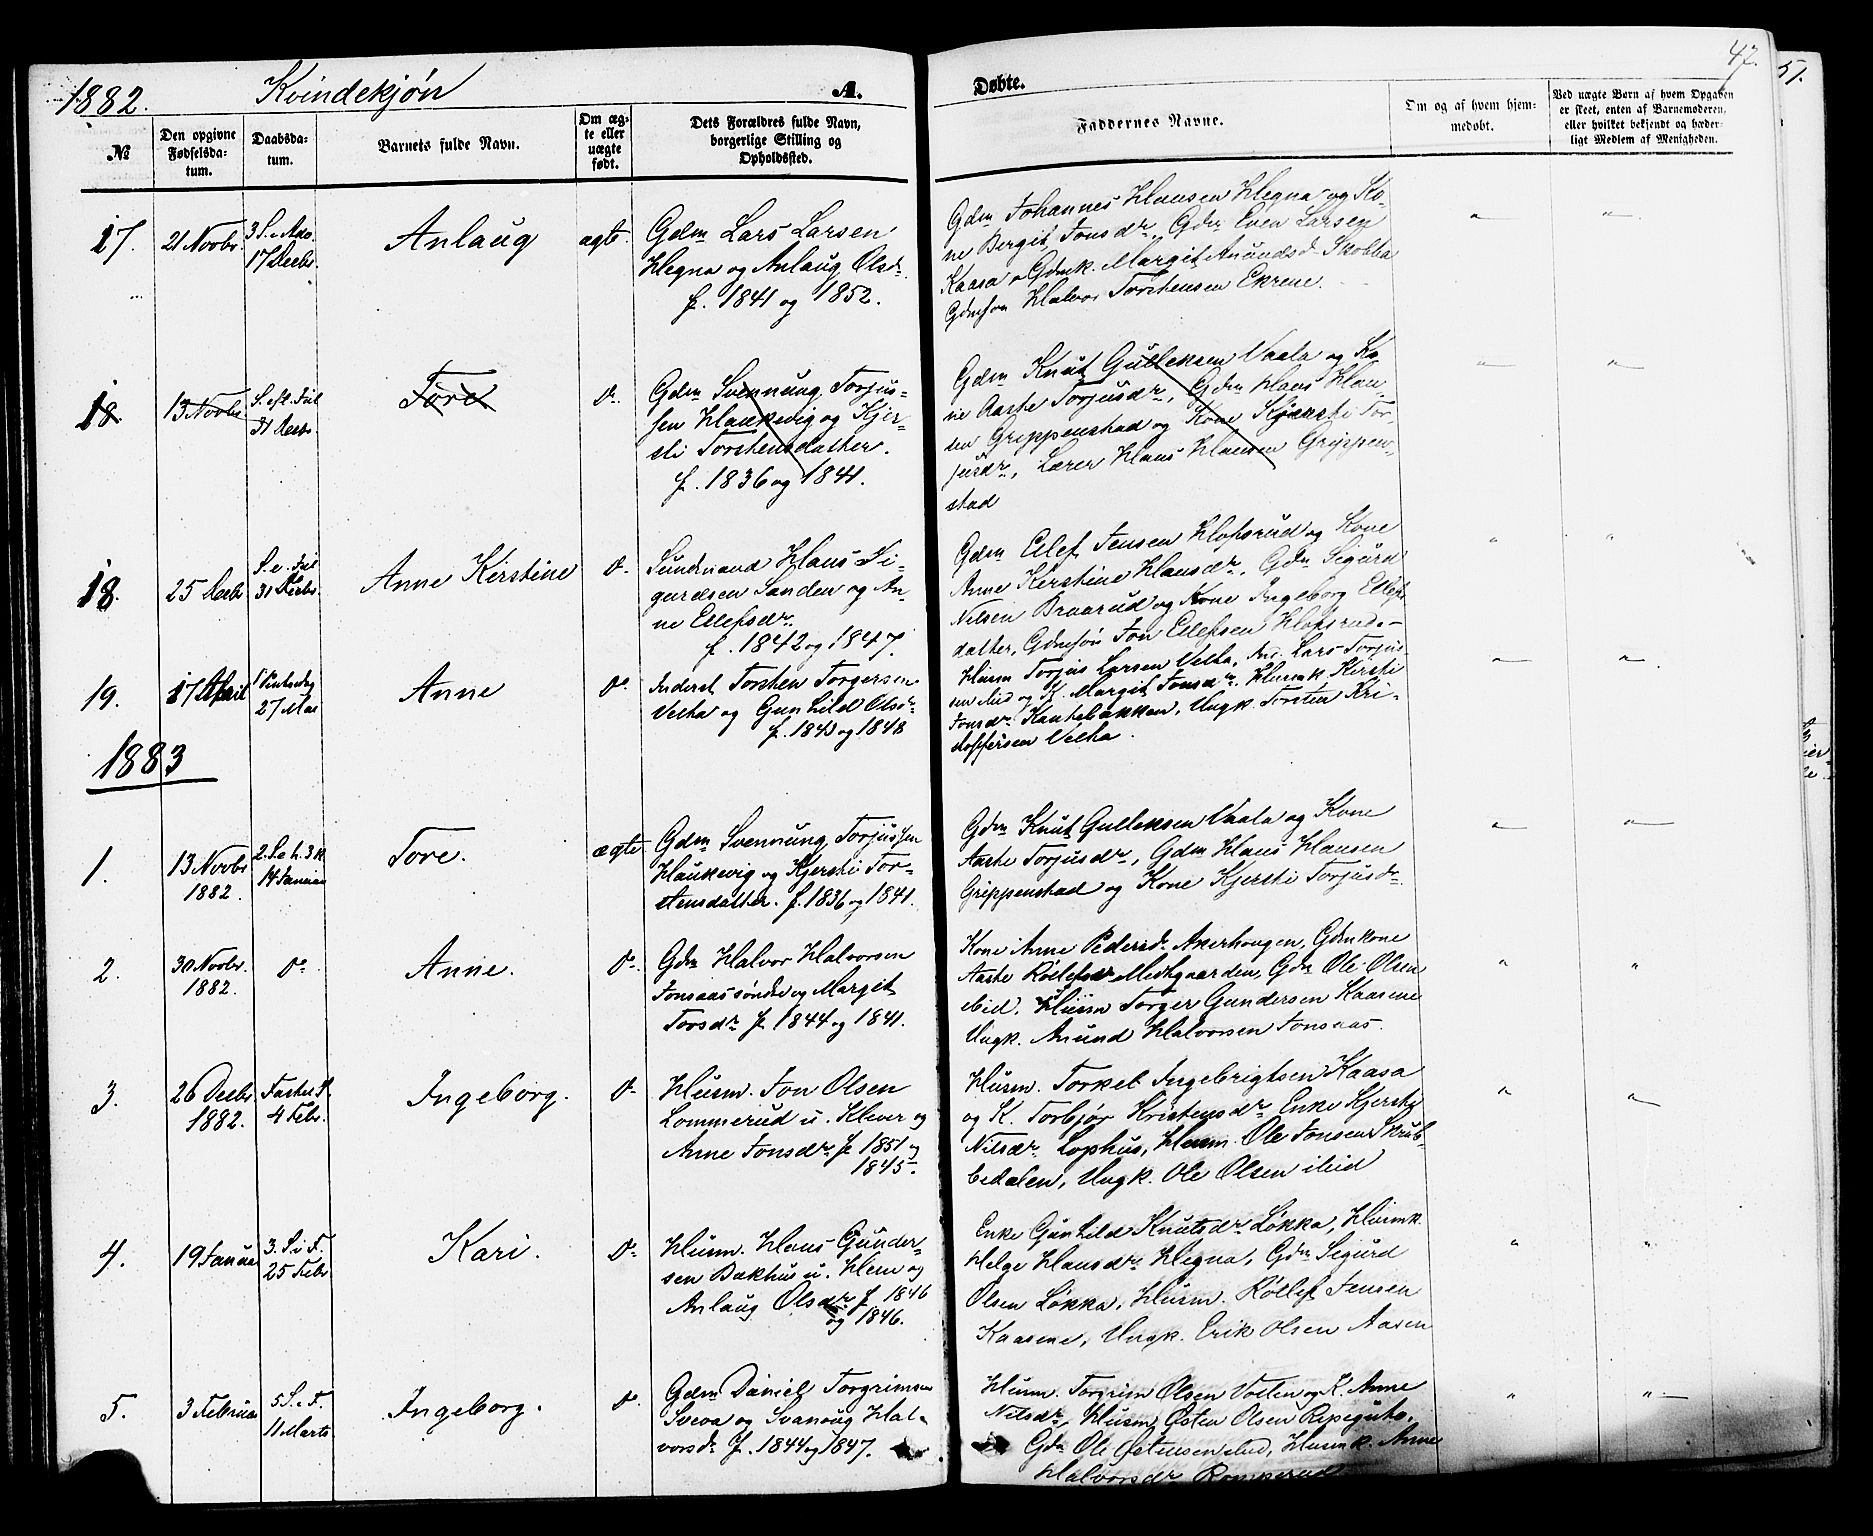 1882. Kvindekjøn A. Døbte. 47. 51.
№
Den opgivne Fødselsdatum.
Daabsdatum.
Barnets fulde Navn.
Om ægte eller uægte født.
Dets Forældres fulde Navn, borgerlige Stilling og Opholdssted.
Faddernes Navne.
Om og af hvem hjemmedøbt.
Ved uægte Børn af hvem Opgaven er skeet, enten af Barnemoderen, eller hvilket bekjendt og hæderligt Medlem af Menigheden.
17. 21 Novbr. 3 S. i Adv. 17 Decbr. Anlaug ægte.
Gdm Lars Larsen
Hegna og Anlaug Olsdr
f. 1841 og 1852.
Gdm Johannes Hansen Hegna og Ko-
ne Bergit Jonsdr, Gdm Even Larsen
Kaasa o Gdmk. Margit Anundsd Skobba
Gdmsøn Halvor Torstensen Ekrene.
18. 13 Novbr. S. efl. Jul 31 Decbr. Tore do.
Gdm Svennung Torjus-
sen Haukevig og Kjer-
sti Torstensdatter.
f. 1836 og 1841.
Gdm Knut Gulleksen Vaala og Ko-
ne Aaste Torjusdr, Gdm Hans Han-
sen Grippenstad og Kone Kjersti Tor-
jusdr, Lærer Hans Hansen Grippen-
stad
18. 25 Decbr S. e. Jul 31 Decbr. Anne Kirstine do.
Sundmand Hans Si-
gurdsen Sanden og An-
ne Ellefsdr.
f. 1842 og 1847.
Gdm Ellef Jensen Hofsrud og Kone
Anne Kirstine Hansdr, Gdm Sigurd
Nilsen Bruarud og Kone Ingeborg Ellefs
datter, Gdmsøn Jon Ellefsen Hofsrud.
19. 17 April 1 Pintsedag 27 Mai Anne do.
Inderst Torsten Torgersen
Velta og Gunhild Olsdr
f. 1843 og 1848
Husm Torjus Larsen Velta, Ind. Lars Torjus
sen ibid og K. Margit Jonsdr. Husmk Kirsti
Jonsdr. Kaatebakken, Ungk. Torsten Kri-
stoffersen Velta.
1883
1. 13 Novbr 1882. 2. S. e. h. 3 K. 14 Januar Tore. ægte
Gdm Svennung Torjussen
Haukevig og Kjersti Tor-
stensdatter. f. 1836 og 1841.
Gdm Knut Gulleksen Vaala og Kone
Aaste Torjusdr, Gdm Hans Hansen
Grippenstad og Kone Kjersti Torjusdr.
2. 30 Novbr. 1882. do. Anne. do.
Gdm Halvor Halvorsen
Jonsaas søndre og Margit
Torsdr f. 1844 og 1841.
Kone Anne Pedersdr. Akerhougen, Gdmkone
Aaste Rollefsdr Midtgaarden, Gdm Ole Olsen
ibid. Husm Torger Gundersen Kaasene
Ungk. Anund Halvorsen Jonsaas.
3. 26 Decbr 1882. Fastel S. 4 Febr. Ingeborg. do
Husm. Jon Olsen
Lommerud u. Klever og
Anne Jonsdr. f. 1851 og
1845.
Husm. Torkel Ingebrigtsen Kaasa
og K. Torbjør Kristensdr Enke Kjersti
Nilsdr. Lophus, Husm. Ole Jonsen Skrub-
bedalen, Ungk. Ole Olsen ibid
4. 19 Januar 3. S. i F. 25 Febr Kari. do
Husm. Hans Gunder-
sen Bakhus u. Hem og
Anlaug Olsdr f. 1846
og 1846.
Enke Gunhild Knutsdr Løkka, Husmk.
Helge Hansdr. Hegna, Gdm Sigurd
Olsen Løkka, Husm. Rollef Jensen
Kaasene, Ungk. Erik Olsen Aasen
5. 3 Februar 5 S. i F. 11 Marts Ingeborg. do
Gdm Daniel Torgrimsen
Sveva og Svanoug Hal-
vorsdr f. 1844 og 1847.
Husm. Torgrim Olsen Votten og K. Anne
Nilsdr, Husm Østen Olsen
Gdm Ole Østensen ibid, Husmk. Anne
Halvorsdr Romkerud